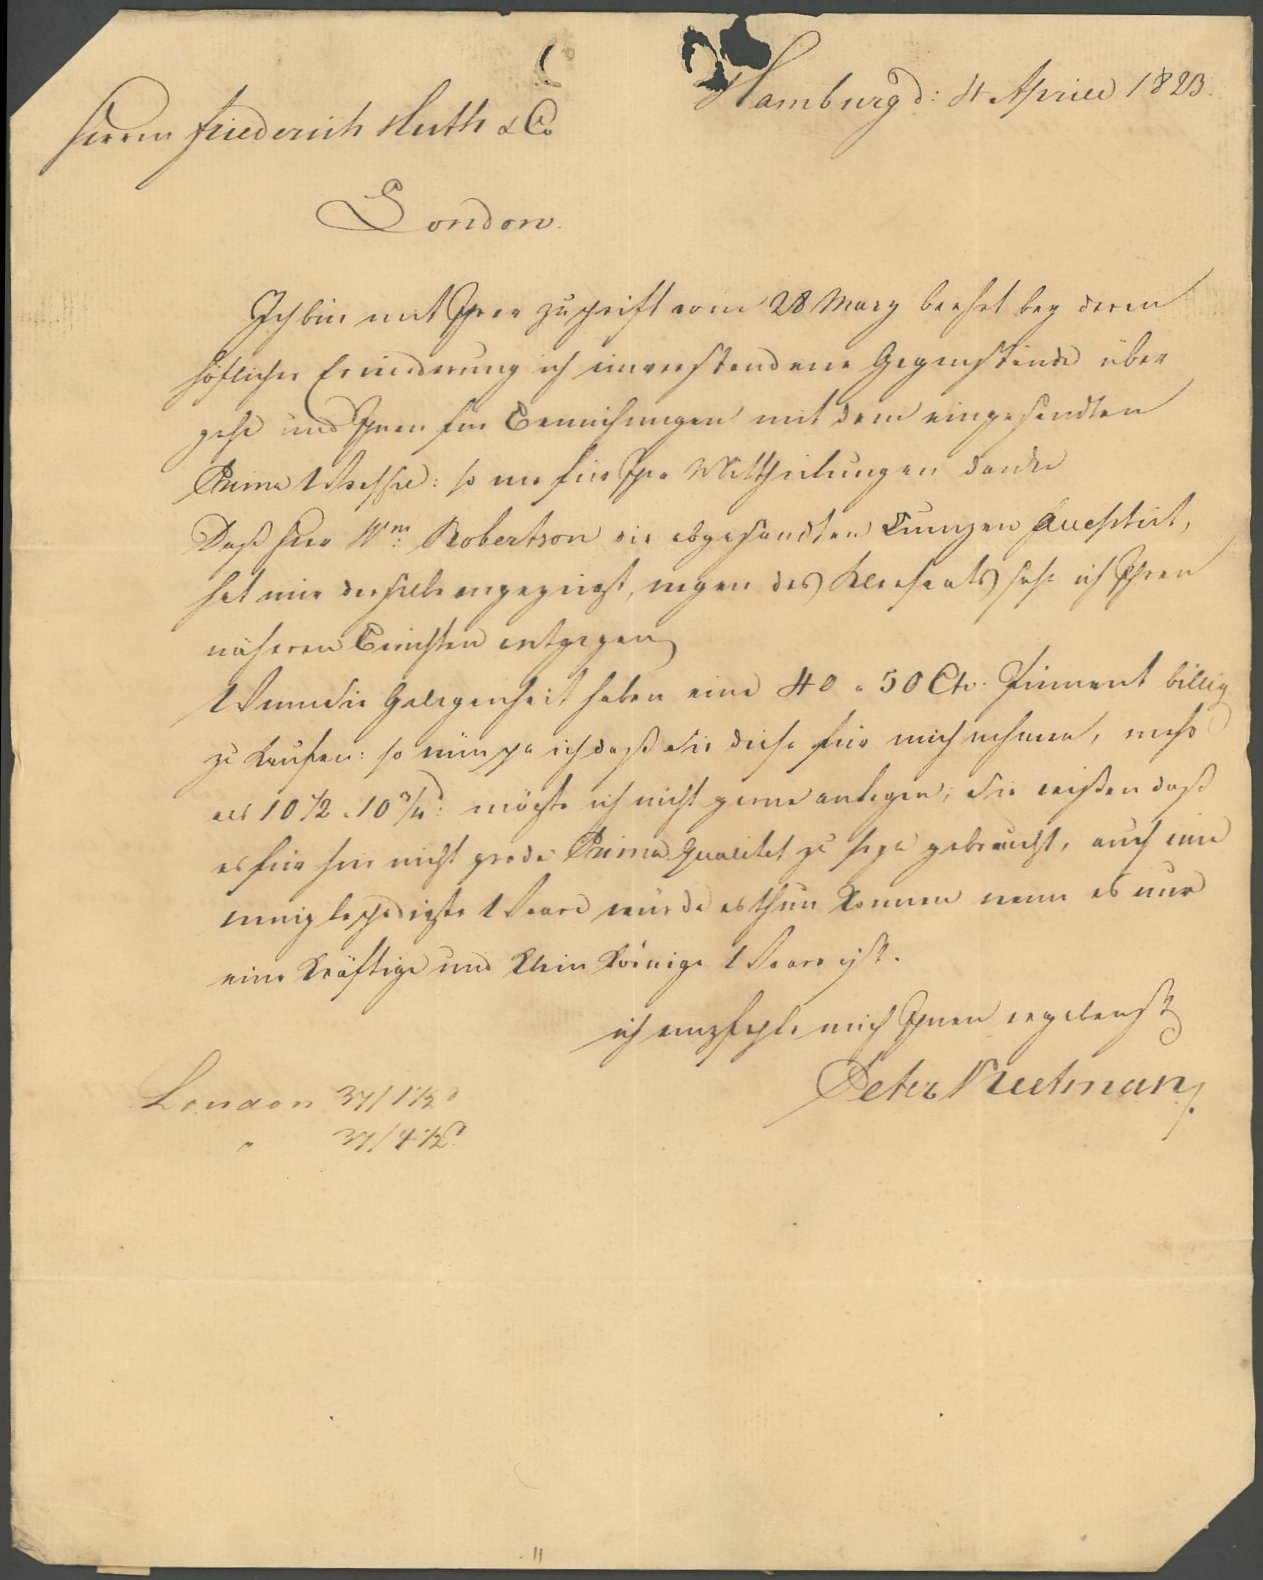 Hamburg d: 4 Aprill 1823.
Herrn Friederich Huth & Co
London.
Ich bin mit Ihrer Zuschrift vom 28 Marz beehrt bey deren
höflicher Erwiederung ich einverstandene Gegenstände über
gehe und Ihnen für Bemühungen mit dem eingesandten
Prima Wechsel: so wie für Ihre Mittheilungen danke
Daß Herr Wm: Robertson die abgesandten
hat mir derselbe angezeigt, wegen des sehe ich Ihren
näheren Berichten entgegen
Wenn Sie Gelegenheit haben eine 40 a 50 Ctr: Piment billig
zu Kaufen: so wünsche ich daß Sie diese für mich nehmen, mehr
als 10 1/2 a 10 3/4: möchte ich nicht gerne anlegen; Sie wißen daß
es für hier nicht grade Prima Qualitet zu seyn gebraucht, auch eine
wenig Waare würde es thun Konnen wenn es nur
eine Kräftige und Klein Körnige Waare ist.
ich empfehle mich Ihnen ergebenst
Peter
London 37/1 1/2
" 37/4 1/2